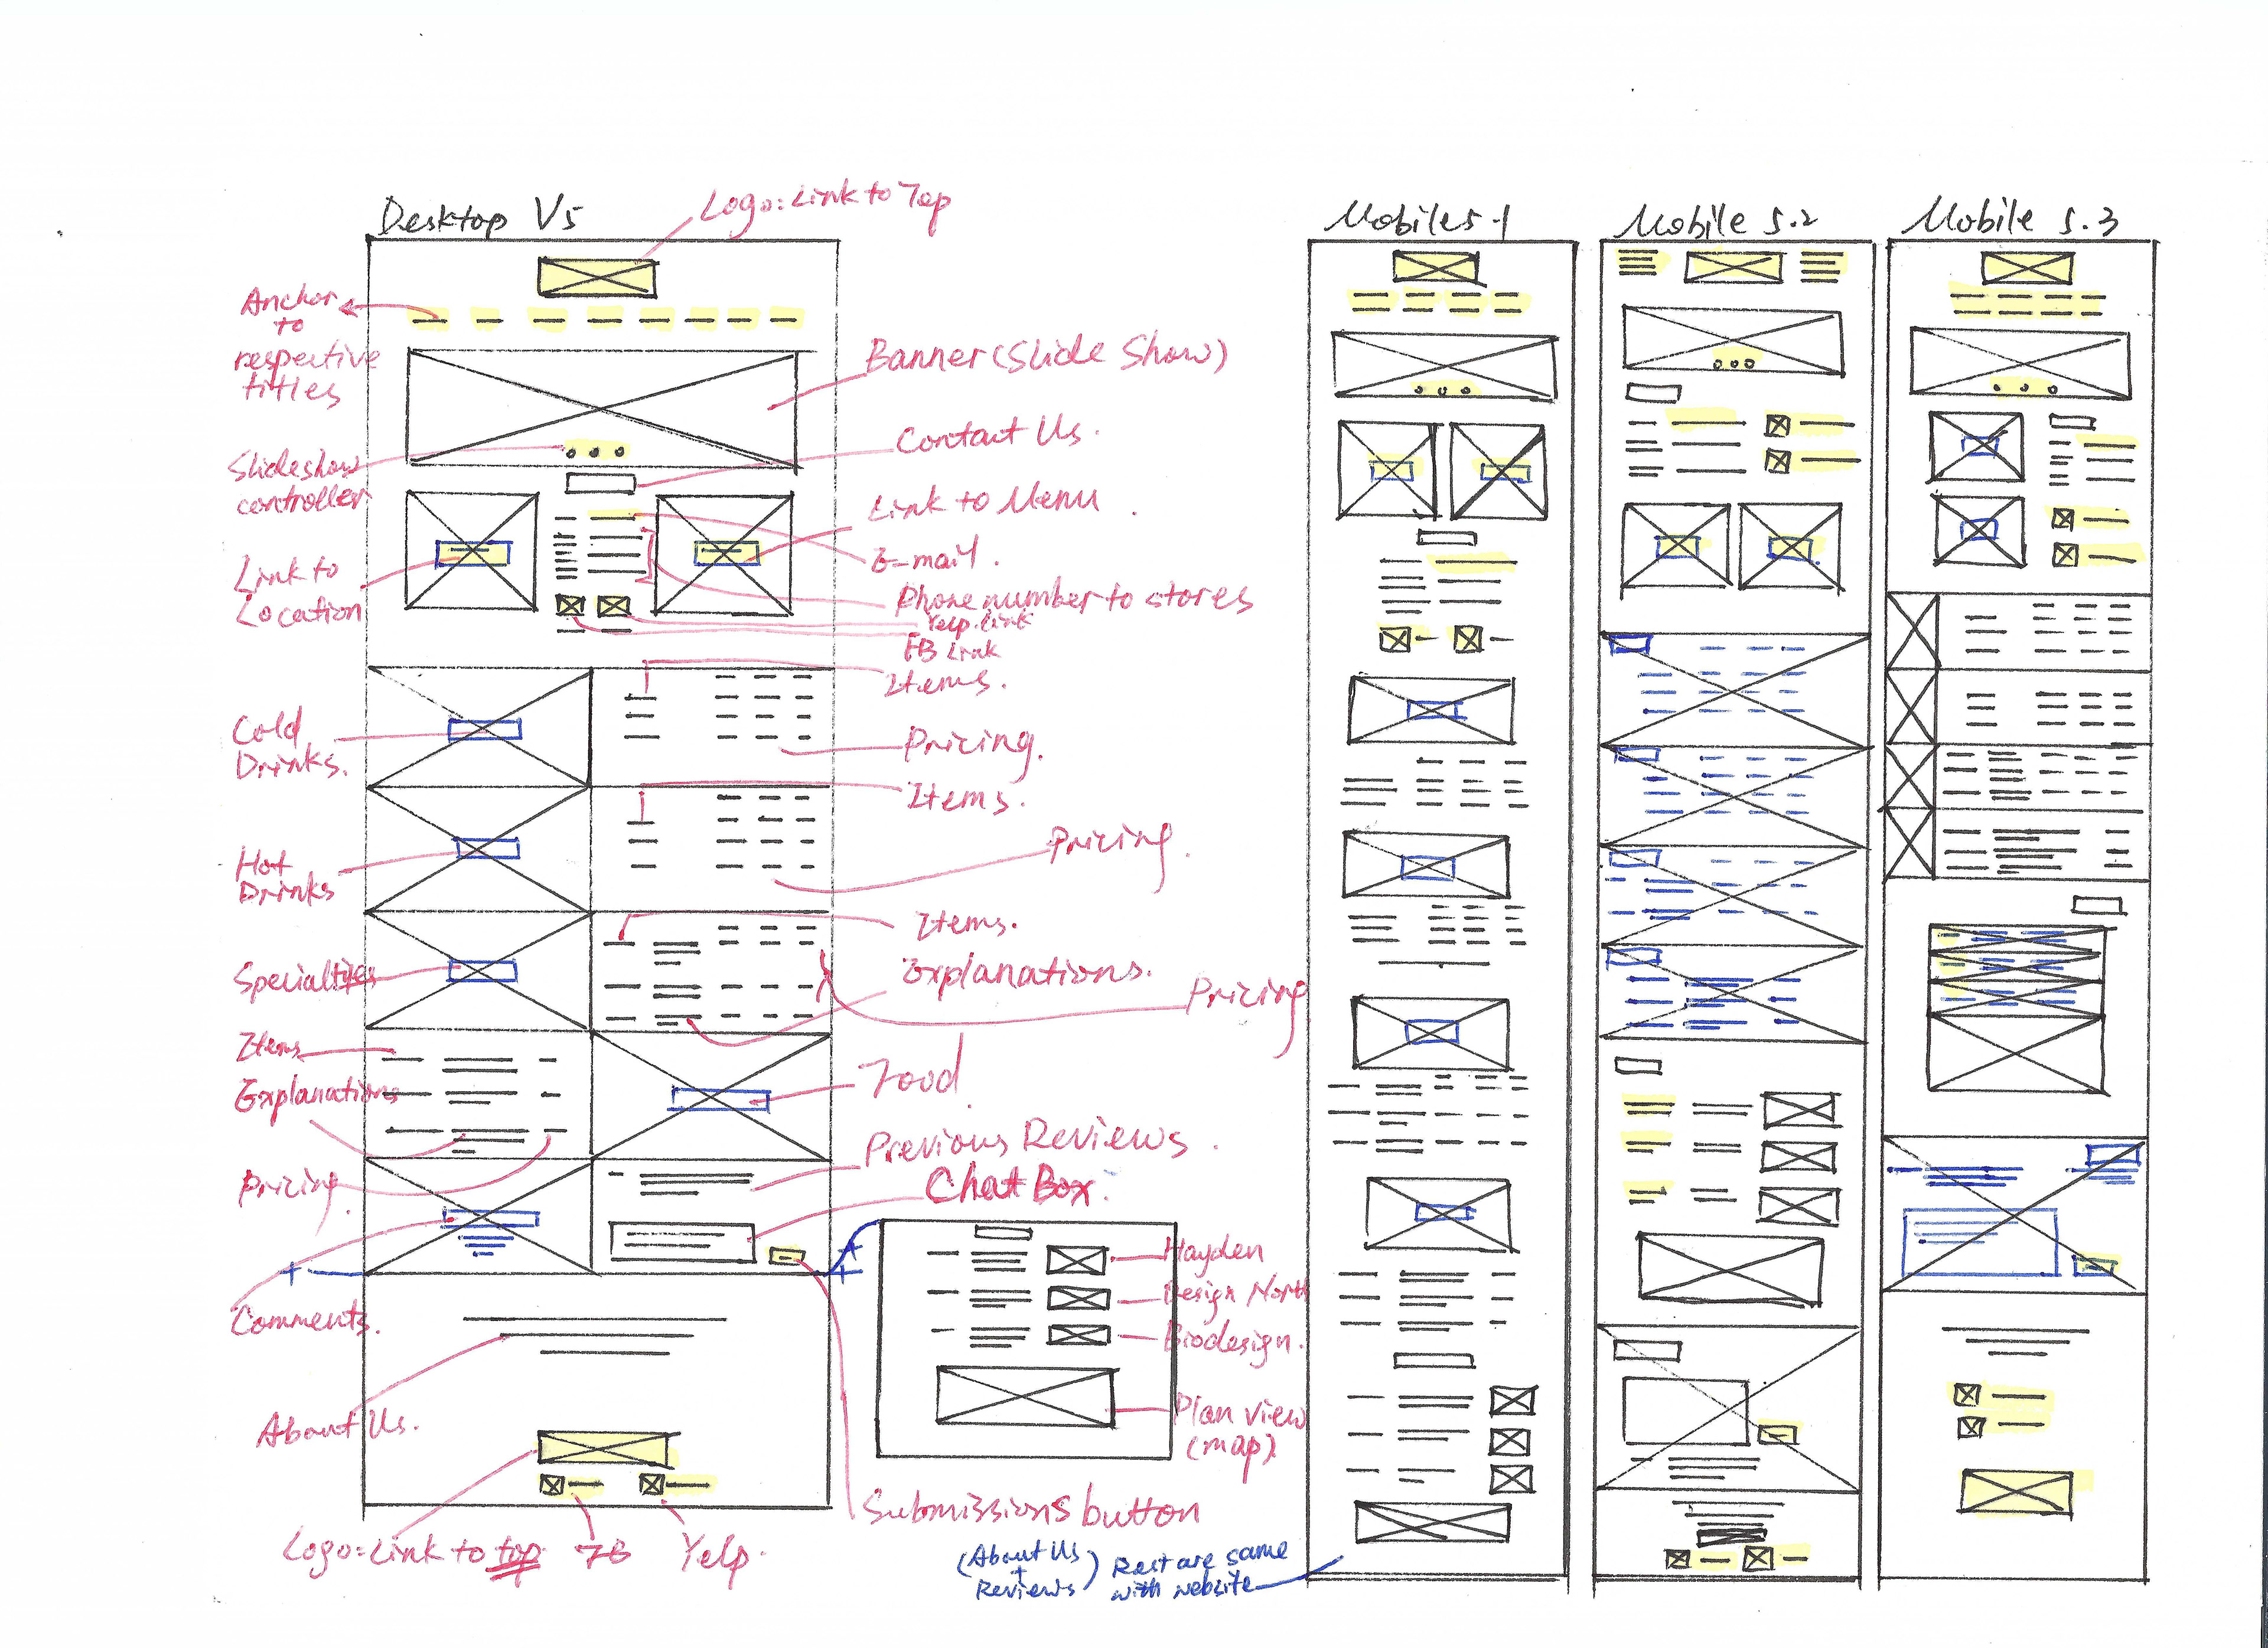 Desktop V5
Logo: Link to Top
Anchor
to
respective
titles
Banner (Slide Show)
Slideshow
controller
Contact Us.
Link to Menu
E-mail.
Link to
Location
Phone number to stores
Yelp. Link
FB Link
Items.
Cold
Drinks.
Pricing.
Items.
Hot
Drinks
Pricing.
Items.
Specialties
Explanations.
Pricing
Items
Explanations
Food
Pricing.
Previous Reviews.
Chat Box.
Comments.
Hayden
Design North
Biodesign.
Plan view
(map)
About Us.
Submissions button
Logo: Link to top.
FB
Yelp.
(About Us
+
Reviews)
Rest are same
with website
Mobile 5.1
Mobile 5.2
Mobile 5.3